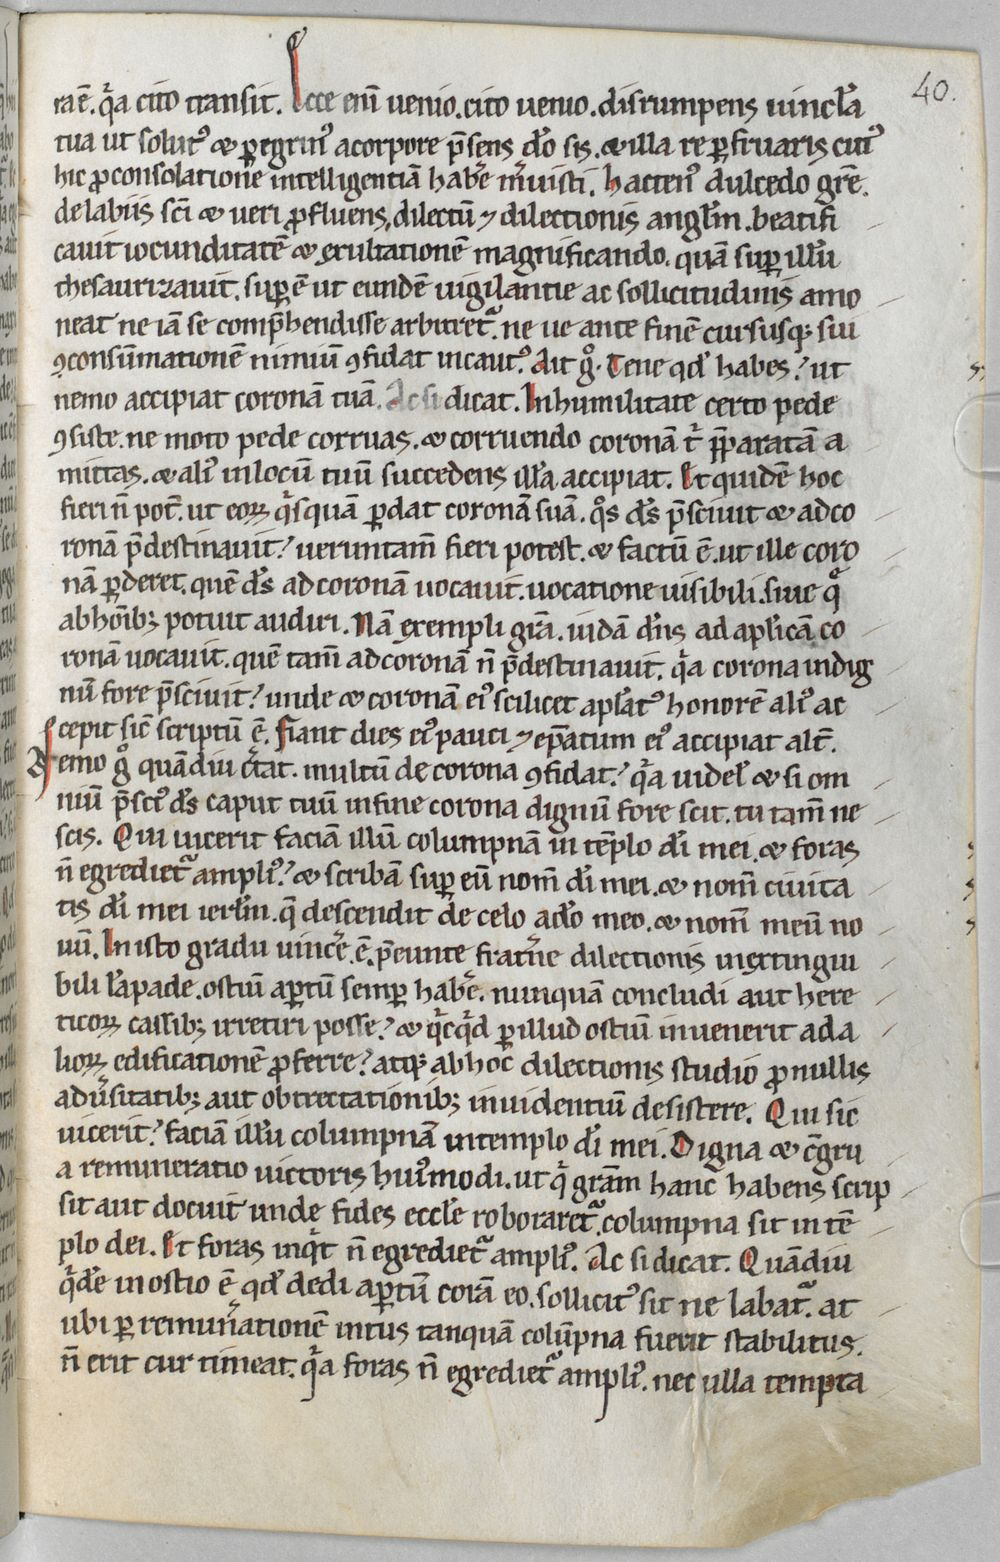 40.
ra ē. qͥa cito transit. Ecce eni̅ uenio. cito uenio. disrumpens uincl̅a
tua ut solut᷒ & p̱egrin᷒ a corpore p̄sens d̅o sis. & illa re p̱fruaris cui᷒
hic ꝓ consolatione̅ intelligentia̅ habe̅ m̅uisti. Hacten᷒ dulcedo gr̅e.
de labiis sc̅i & ueri ꝓfluens, dilectu̅ ⁊ dilectionis angl̅m. beatifi
cauit iocunditate̅ & exultatione̅ magnificando. qua̅ sup̱ illu̅
thesaurizauit. sup̱ e̅ ut eunde̅ uigilantie ac sollicitudinis amo
neat ne ia̅ se comp̄hendisse arbitret᷑. ne ue ante fine̅ cursusq; sui
ꝯsu̅matione̅ nimiu̅ ꝯfidat incaut᷒. Ait gͦ. Tene qd̅ habes? ut
nemo accipiat corona̅ tua̅. Ac si dicat. In humilitate certo pede
ꝯsiste. ne moto pede corruas. & corruendo corona̅ t̅ p̄paratam a
mittas. & ali᷒ in locu̅ tuu̅ succedens illa̅ accipiat. Et quide̅ hoc
fieri n̅ pot̅. ut eoꝝ qͥsqua̅ p̱dat corona̅ sua̅. qͦs d̅s p̄sciuit & ad co
rona̅ p̄destinauit? ueruntam̅ fieri potest. & factu̅ e̅. ut ille coro
na̅ p̱deret. que̅ d̅s ad corona̅ uocauit. uocatione uisibili. siue q̅
ab ho̅ib; potuit audiri. Na̅ exempli gr̅a. iuda̅ d̅ns ad apl̅ica̅ co
rona̅ uocauit. que̅ tam̅ ad corona̅ n̅ p̄destinauit. qͥa corona indig
nu̅ fore p̄sciuit? unde & corona̅ ei᷒ scilicet apl̅at᷒ honore̅ ali᷒ ac
cepit sic̅ scriptu̅ e̅. Fiant dies ei᷒ pauci ⁊ ep̅atum ei᷒ accipiat alt̅.
Nemo gͦ qua̅diu c̅tat. multu̅ de corona ꝯfidat? qͥa uidel̅ & si om
niu̅ p̄sci᷒ d̅s caput tuu̅ in fine corona dignu̅ fore scit. tu tam̅ ne
scis. Qui uicerit facia̅ illu̅ columpna̅ in te̅plo d̅i mei. & foras
n̅ egrediet᷑ ampli᷒? & scriba̅ sup̱ eu̅ nom̅ d̅i mei. & nom̅ ciuita
tis d̅i mei ierl̅m. q̅ descendit de celo a d̅o meo. & nom̅ meu̅ no
uu̅. In isto gradu uince̅ e̅. p̄eunte fratne̅ dilectionis inextingui
bili la̅pade. ostiu̅ ap̱tu̅ semp̱ habe̅. nunqua̅ concludi aut here
ticoꝝ cassib; irretiri posse? & qͥcqͥd p̱ illud ostiu̅ inuenerit ad a
lioꝝ edificatione̅ ꝓferre? atq; ab hoc dilectionis studio ꝓ nullis
adu̅sitatib; aut obtrectationib; inuidentiu̅ desistere. Qui sic
uicerit? facia̅ illu̅ columpna̅ in templo d̅i mei. Digna & c̅gru
a remuneratio uictoris hui᷒modi. ut qͥ gra̅m hanc habens scrip
sit aut docuit unde fides eccl̅e roboraret᷑. columpna sit in te̅
plo dei. Et foras inqͥt n̅ egrediet᷑ ampli᷒. Ac si dicat. Qua̅diu
qͥde̅ in ostio e̅ qd̅ dedi ap̱tu̅ cora̅ eo. sollicit᷒ sit ne labat᷑. at
ubi p̱ remun̅atione̅ intus tanqua̅ colu̅pna fuerit stabilitus.
n̅ erit cur timeat. qͥa foras n̅ egrediet᷑ ampli᷒. nec ulla tempta